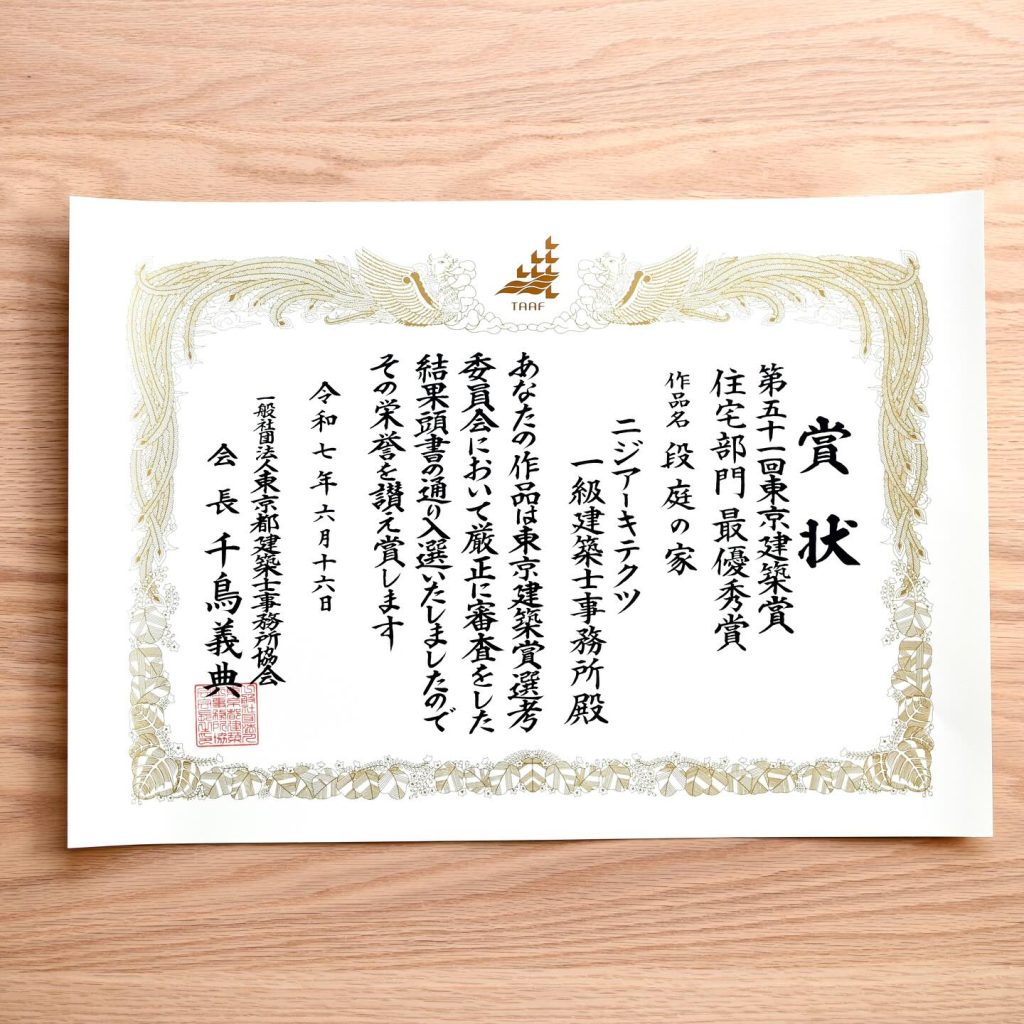 TAAF
賞状
第五十一回東京建築賞
住宅部門 最優秀賞
作品名 段庭の家
ニジアーキテクツ
一級建築士事務所殿
あなたの作品は東京建築賞選考
委員会において厳正に審査をした
結果頭書の通り入選いたしましたので
その栄誉を讃え賞します
令和七年六月十六日
一般社団法人東京都建築士事務所協会
会長 千鳥義典